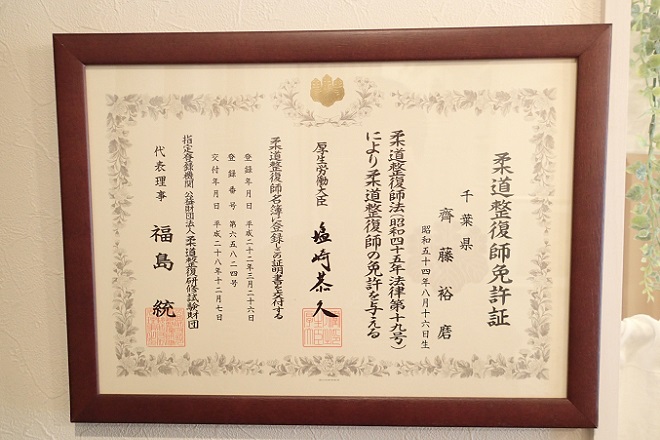 柔道整復師免許証
千葉県
齊藤裕磨
昭和五十四年八月十六日生
柔道整復師法(昭和四十五年法律第十九号)
により柔道整復師の免許を与える
厚生労働大臣 塩崎恭久
柔道整復師名簿に登録しこの証明書を交付する
登録年月日 平成二十二年三月二十六日
登録番号 第六五八二四号
交付年月日 平成二十八年十二月七日
指定登録機関 公益財団法人柔道整復研修試験財団
代表理事 福島統